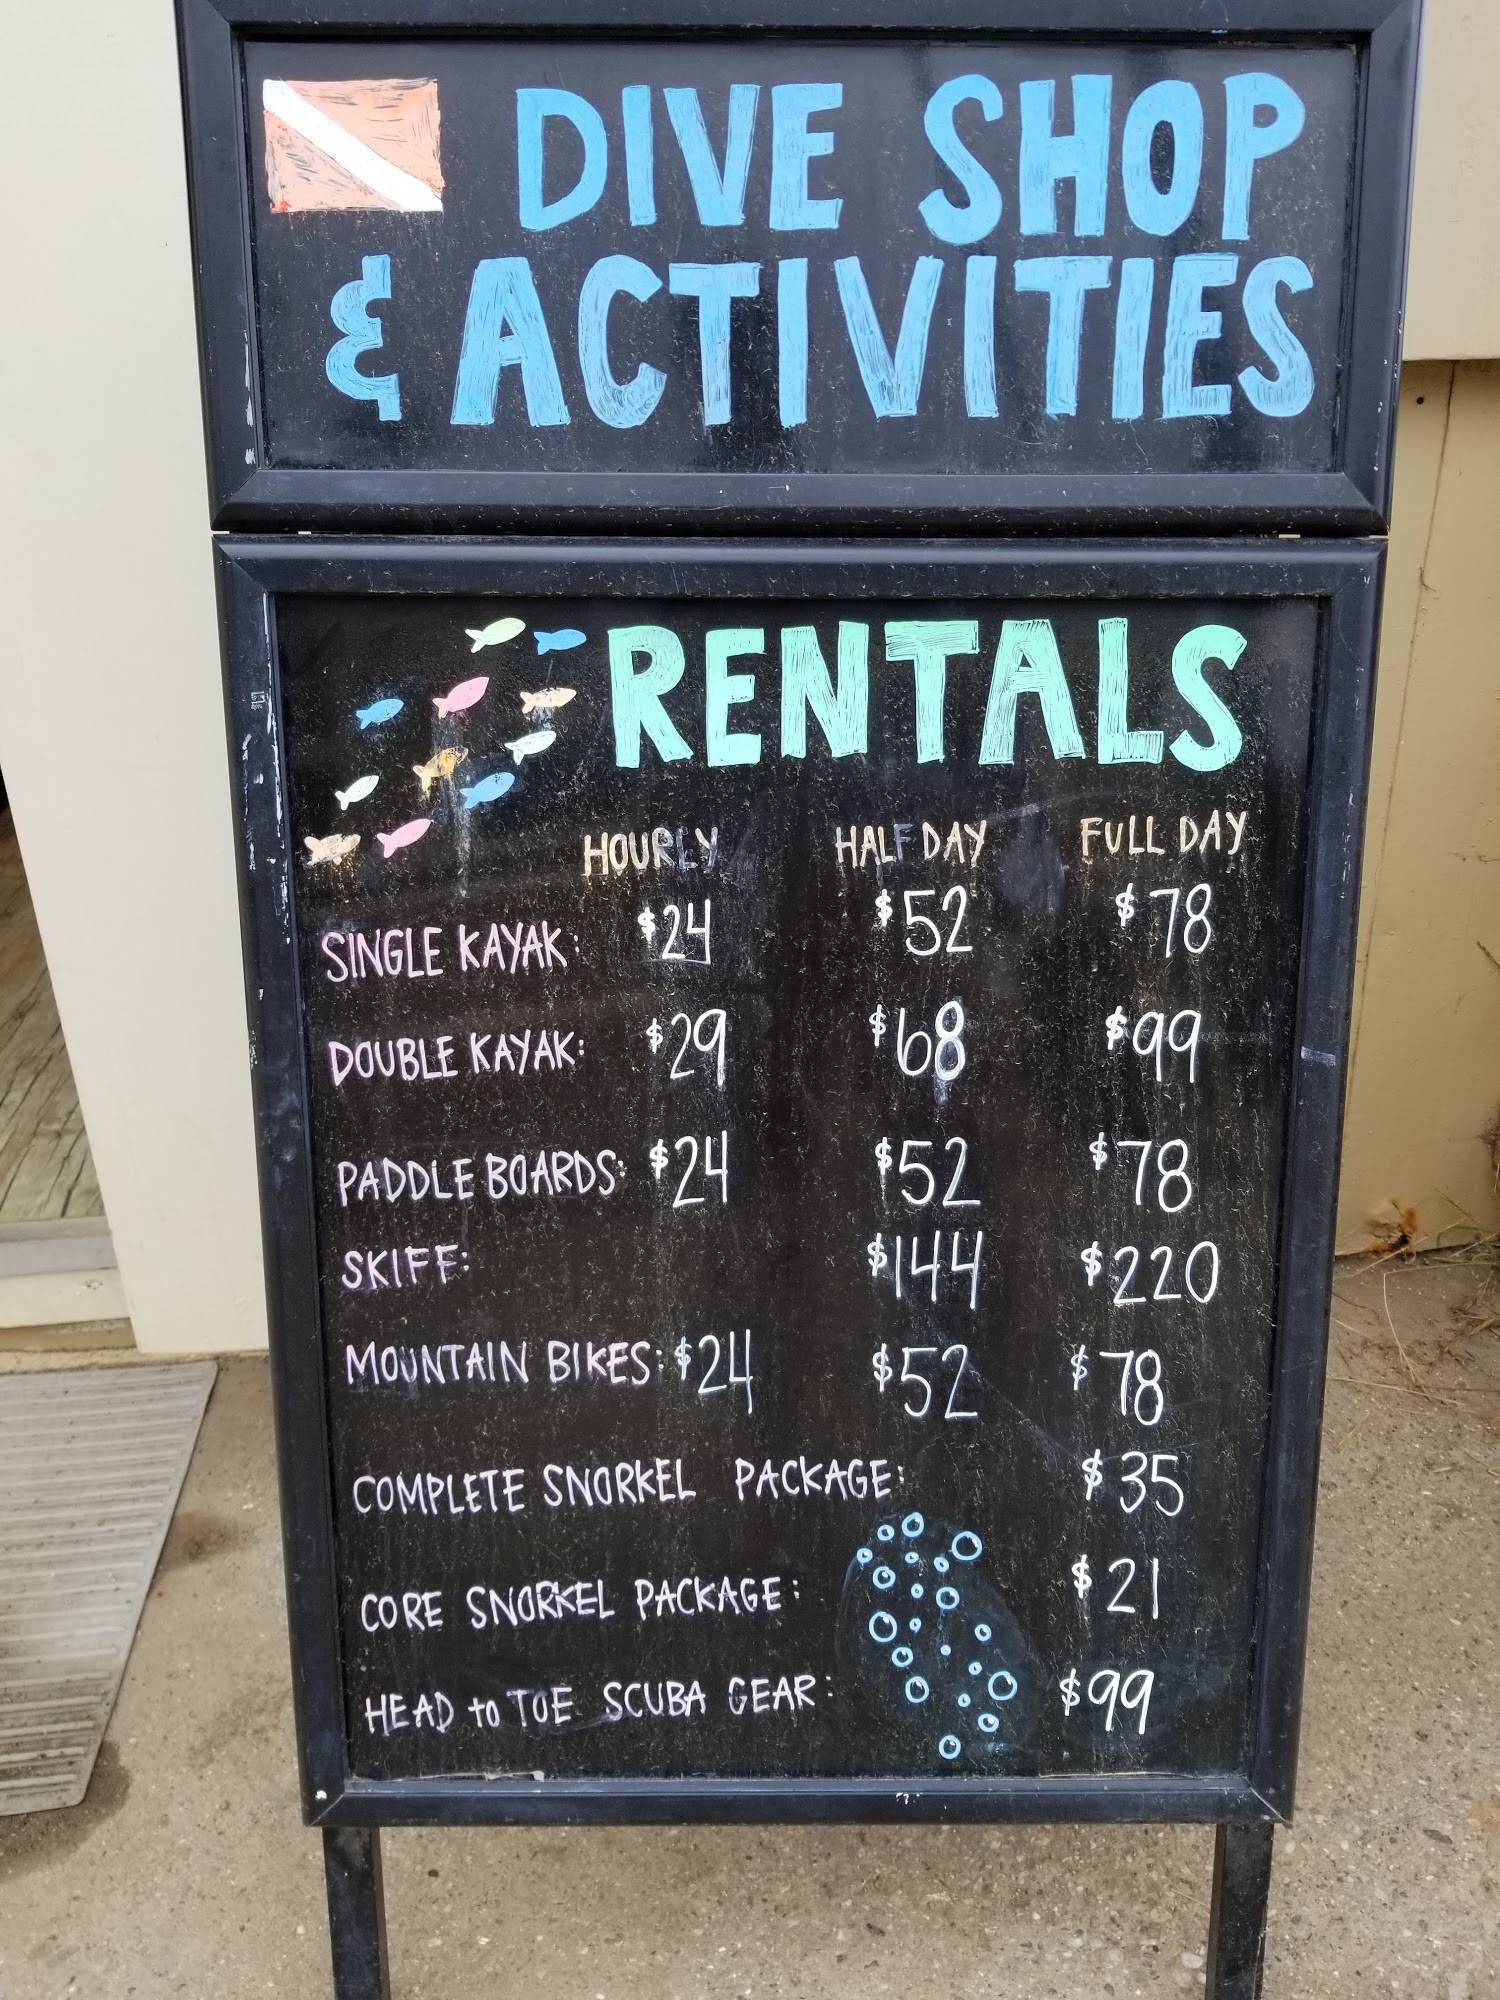 DIVE SHOP
& ACTIVITIES
RENTALS
HOURLY HALF DAY FULL DAY
SINGLE KAYAK: $24 $52 $78
DOUBLE KAYAK: $29 $68 $99
PADDLE BOARDS: $24 $52 $78
SKIFF: $144 $220
MOUNTAIN BIKES: $24 $52 $78
COMPLETE SNORKEL PACKAGE: $35
CORE SNORKEL PACKAGE: $21
HEAD to TOE SCUBA GEAR: $99